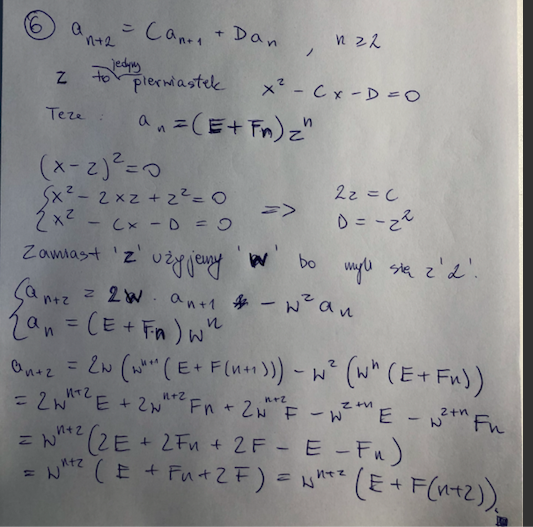 ⑥ a_{n+2} = Ca_{n+1} + Da_n , n ≥ 2
jedyny
z to pierwiastek x² - Cx - D = 0
Teza: a_n = (E + Fn) z^n
(x - z)² = 0
{x² - 2xz + z² = 0 => 2z = C
{x² - Cx - D = 0 D = -z²
Zamiast 'z' użyjemy 'w' bo myli się z '2'.
{a_{n+2} = 2w · a_{n+1} - w² a_n
{a_n = (E + Fn) w^n
a_{n+2} = 2w (w^{n+1} (E + F(n+1))) - w² (w^n (E + Fn))
= 2w^{n+2} E + 2w^{n+2} Fn + 2w^{n+2} F - w^{2+n} E - w^{2+n} Fn
= w^{n+2} (2E + 2Fn + 2F - E - Fn)
= w^{n+2} (E + Fn + 2F) = w^{n+2} (E + F(n+2)).